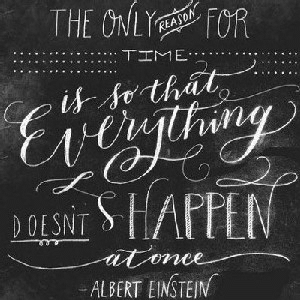 THE ONLY REASON FOR
TIME
is so that
Everything
DOESN'T HAPPEN
at once
-ALBERT EINSTEIN